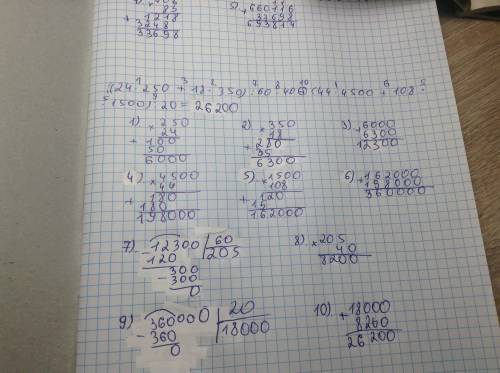 83
+ 1218
3248
33698
5) + 660116
33698
693814
((24 · 250 + 18 · 350) : 60 · 40
(44 · 4500 + 108 ·
1500) : 20 = 26200
1) × 250
24
+ 100
50
6000
2) × 350
18
+ 280
35
6300
3) + 6000
6300
12300
4) × 4500
44
+ 180
180
198000
5) × 1500
108
+ 120
15
162000
6) + 162000
198000
360000
7) - 12300 | 60
120 | 205
300
- 300
0
8) × 205
40
8200
9) - 360000 | 20
360 | 18000
0
10) + 18000
8260
26200